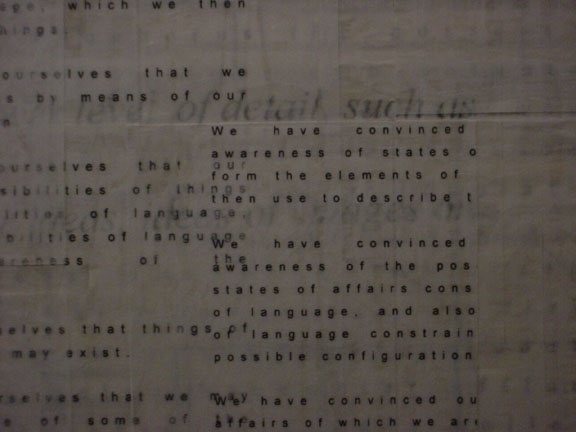 which we then
ourselves that we
s by means of our
level of detail, such as
ourselves that our
sibilities of things
of language,
bilities of language
of the
selves that things of
may exist.
rselves that we may
e of some of the
We have convinced
awareness of states o
form the elements of
then use to describe t
We have convinced
awareness of the pos
states of affairs cons
of language, and also
of language constrain
possible configuration
We have convinced ou
affairs of which we ar